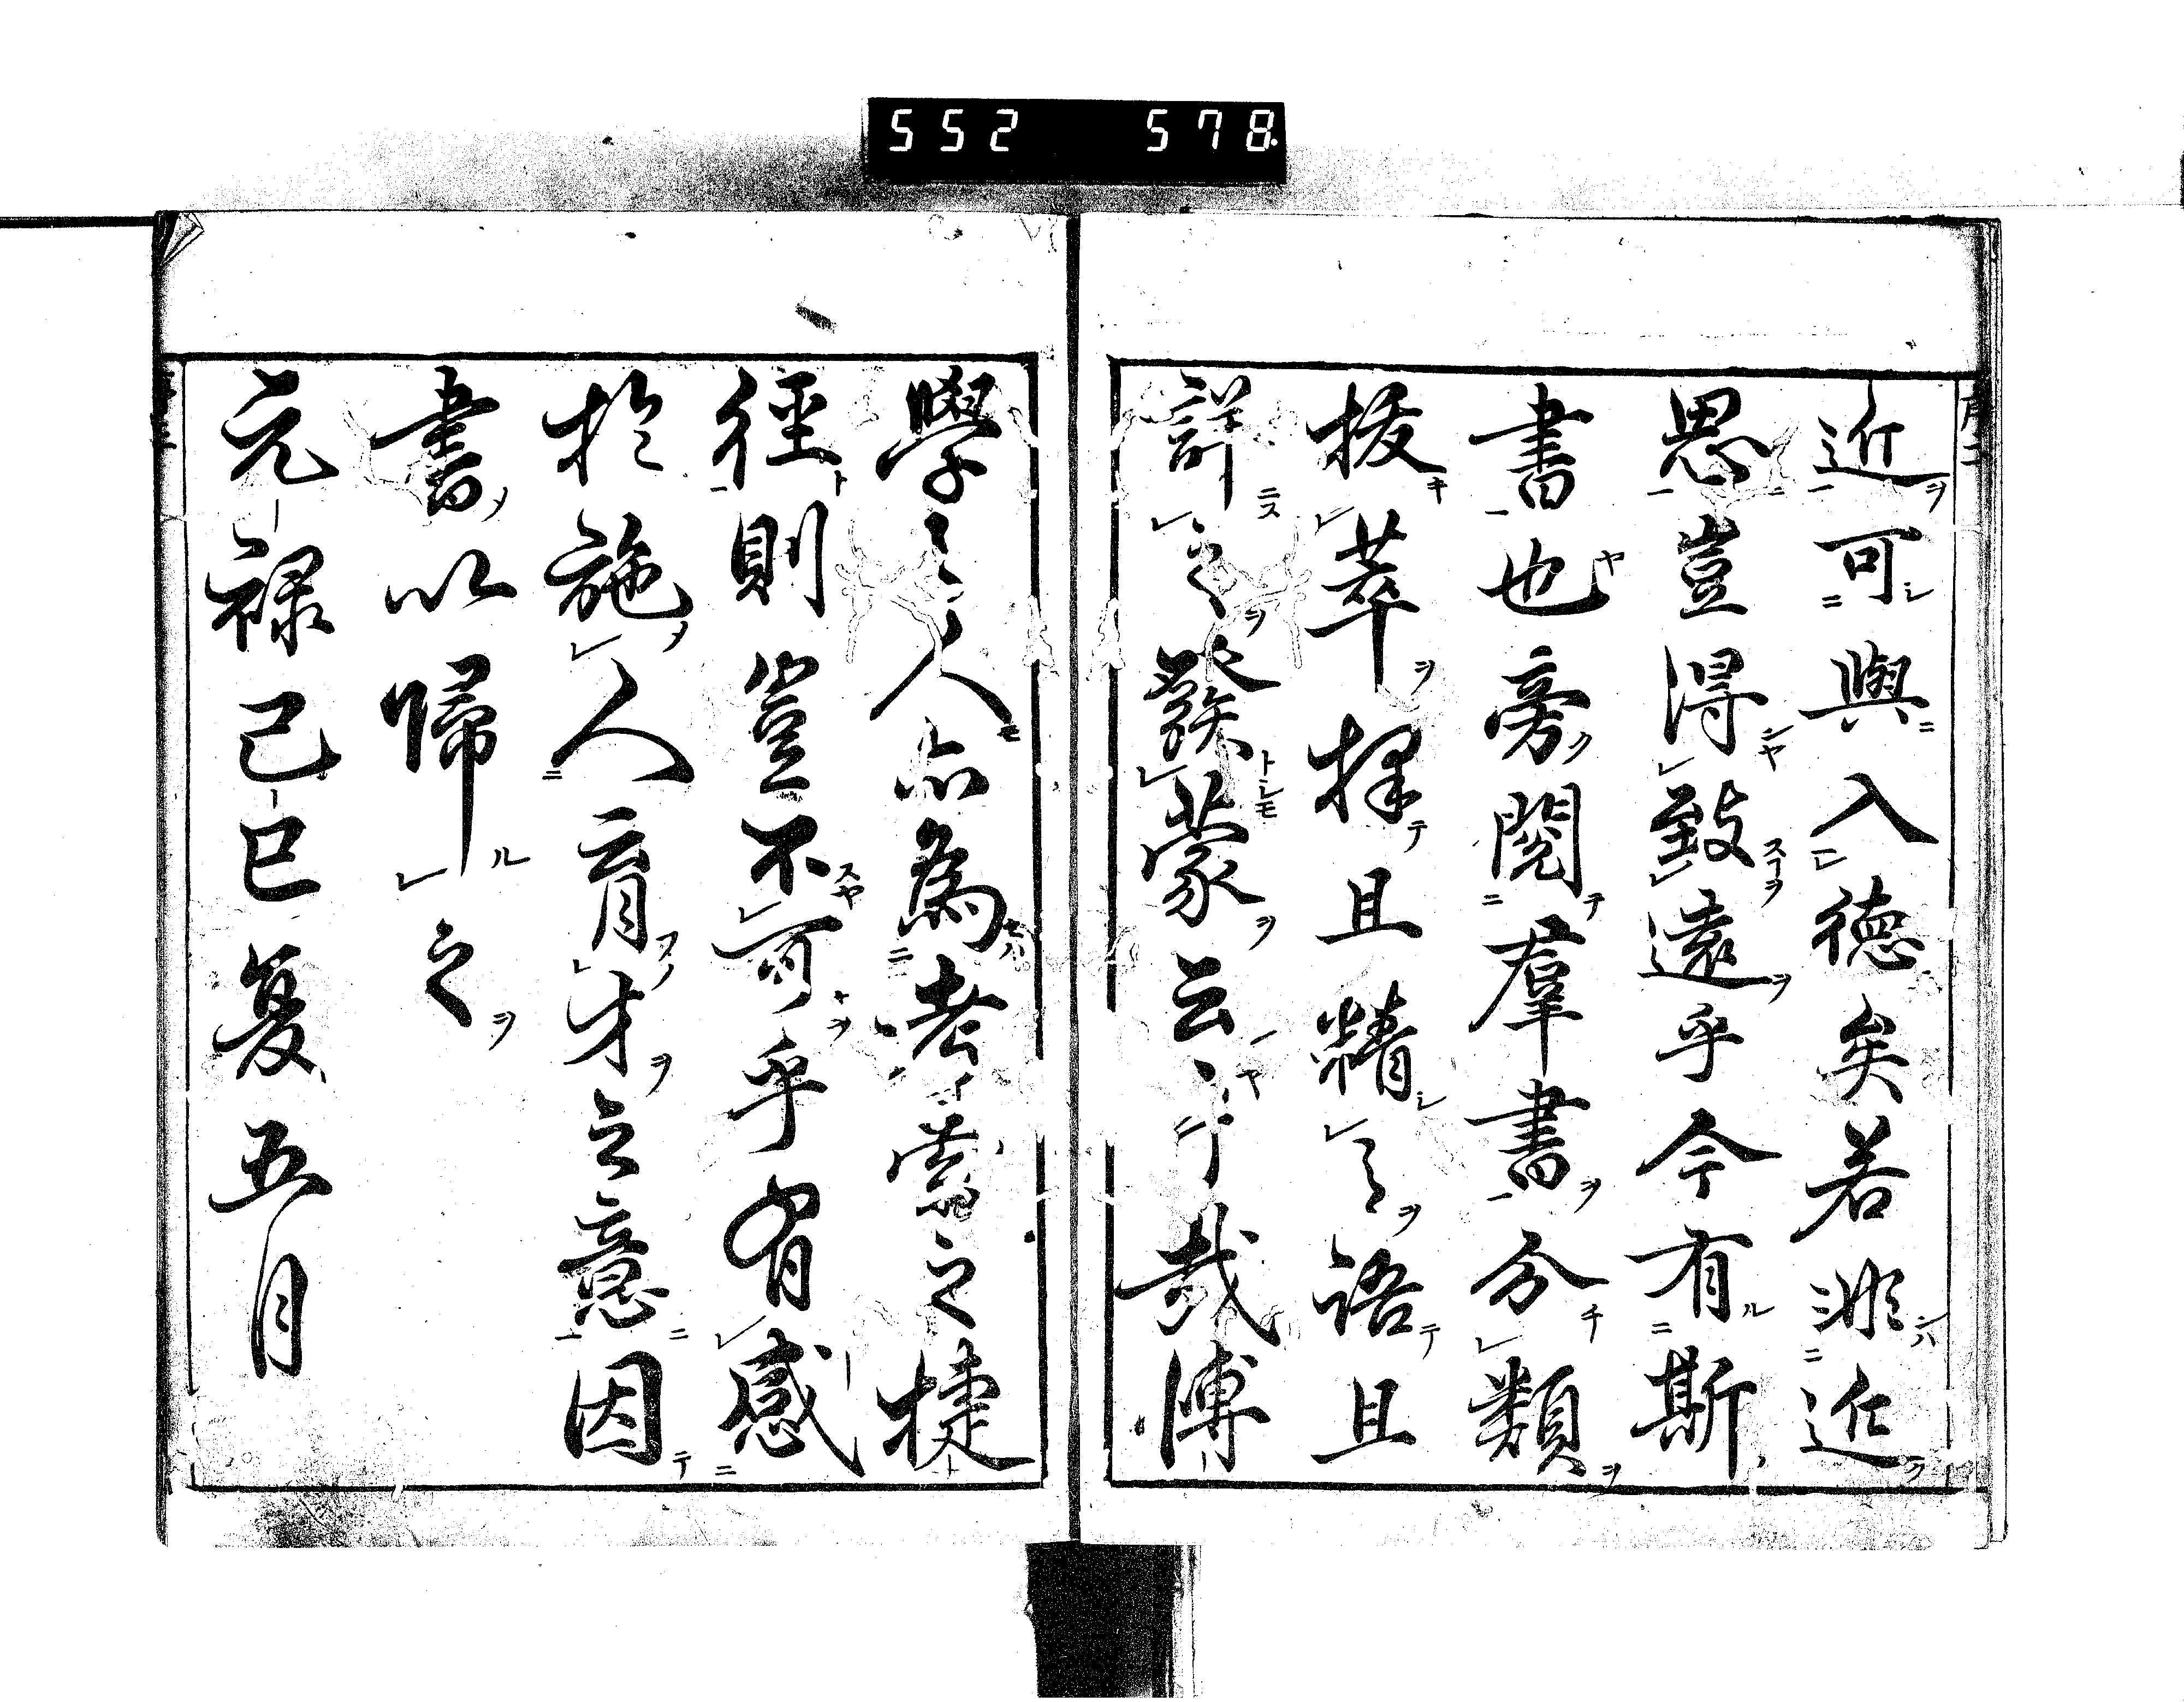 552 578
近可與入德矣若非近
思豈得致遠乎今有斯
書也旁閱羣書分類
拔萃擇且精之語且
詳之發蒙云乎哉博
學之人亦為考索之捷
徑則豈不可乎有感
於施人育才之意因
書以歸之
元祿己巳夏五月